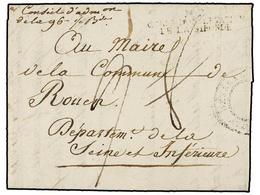 Conseil d'adm on
de la 96e 1/2 B de
DE LA GIRONDE
Au Maire
de la Commune de
Rouen
Départem.t de la
Seine et Inférieure